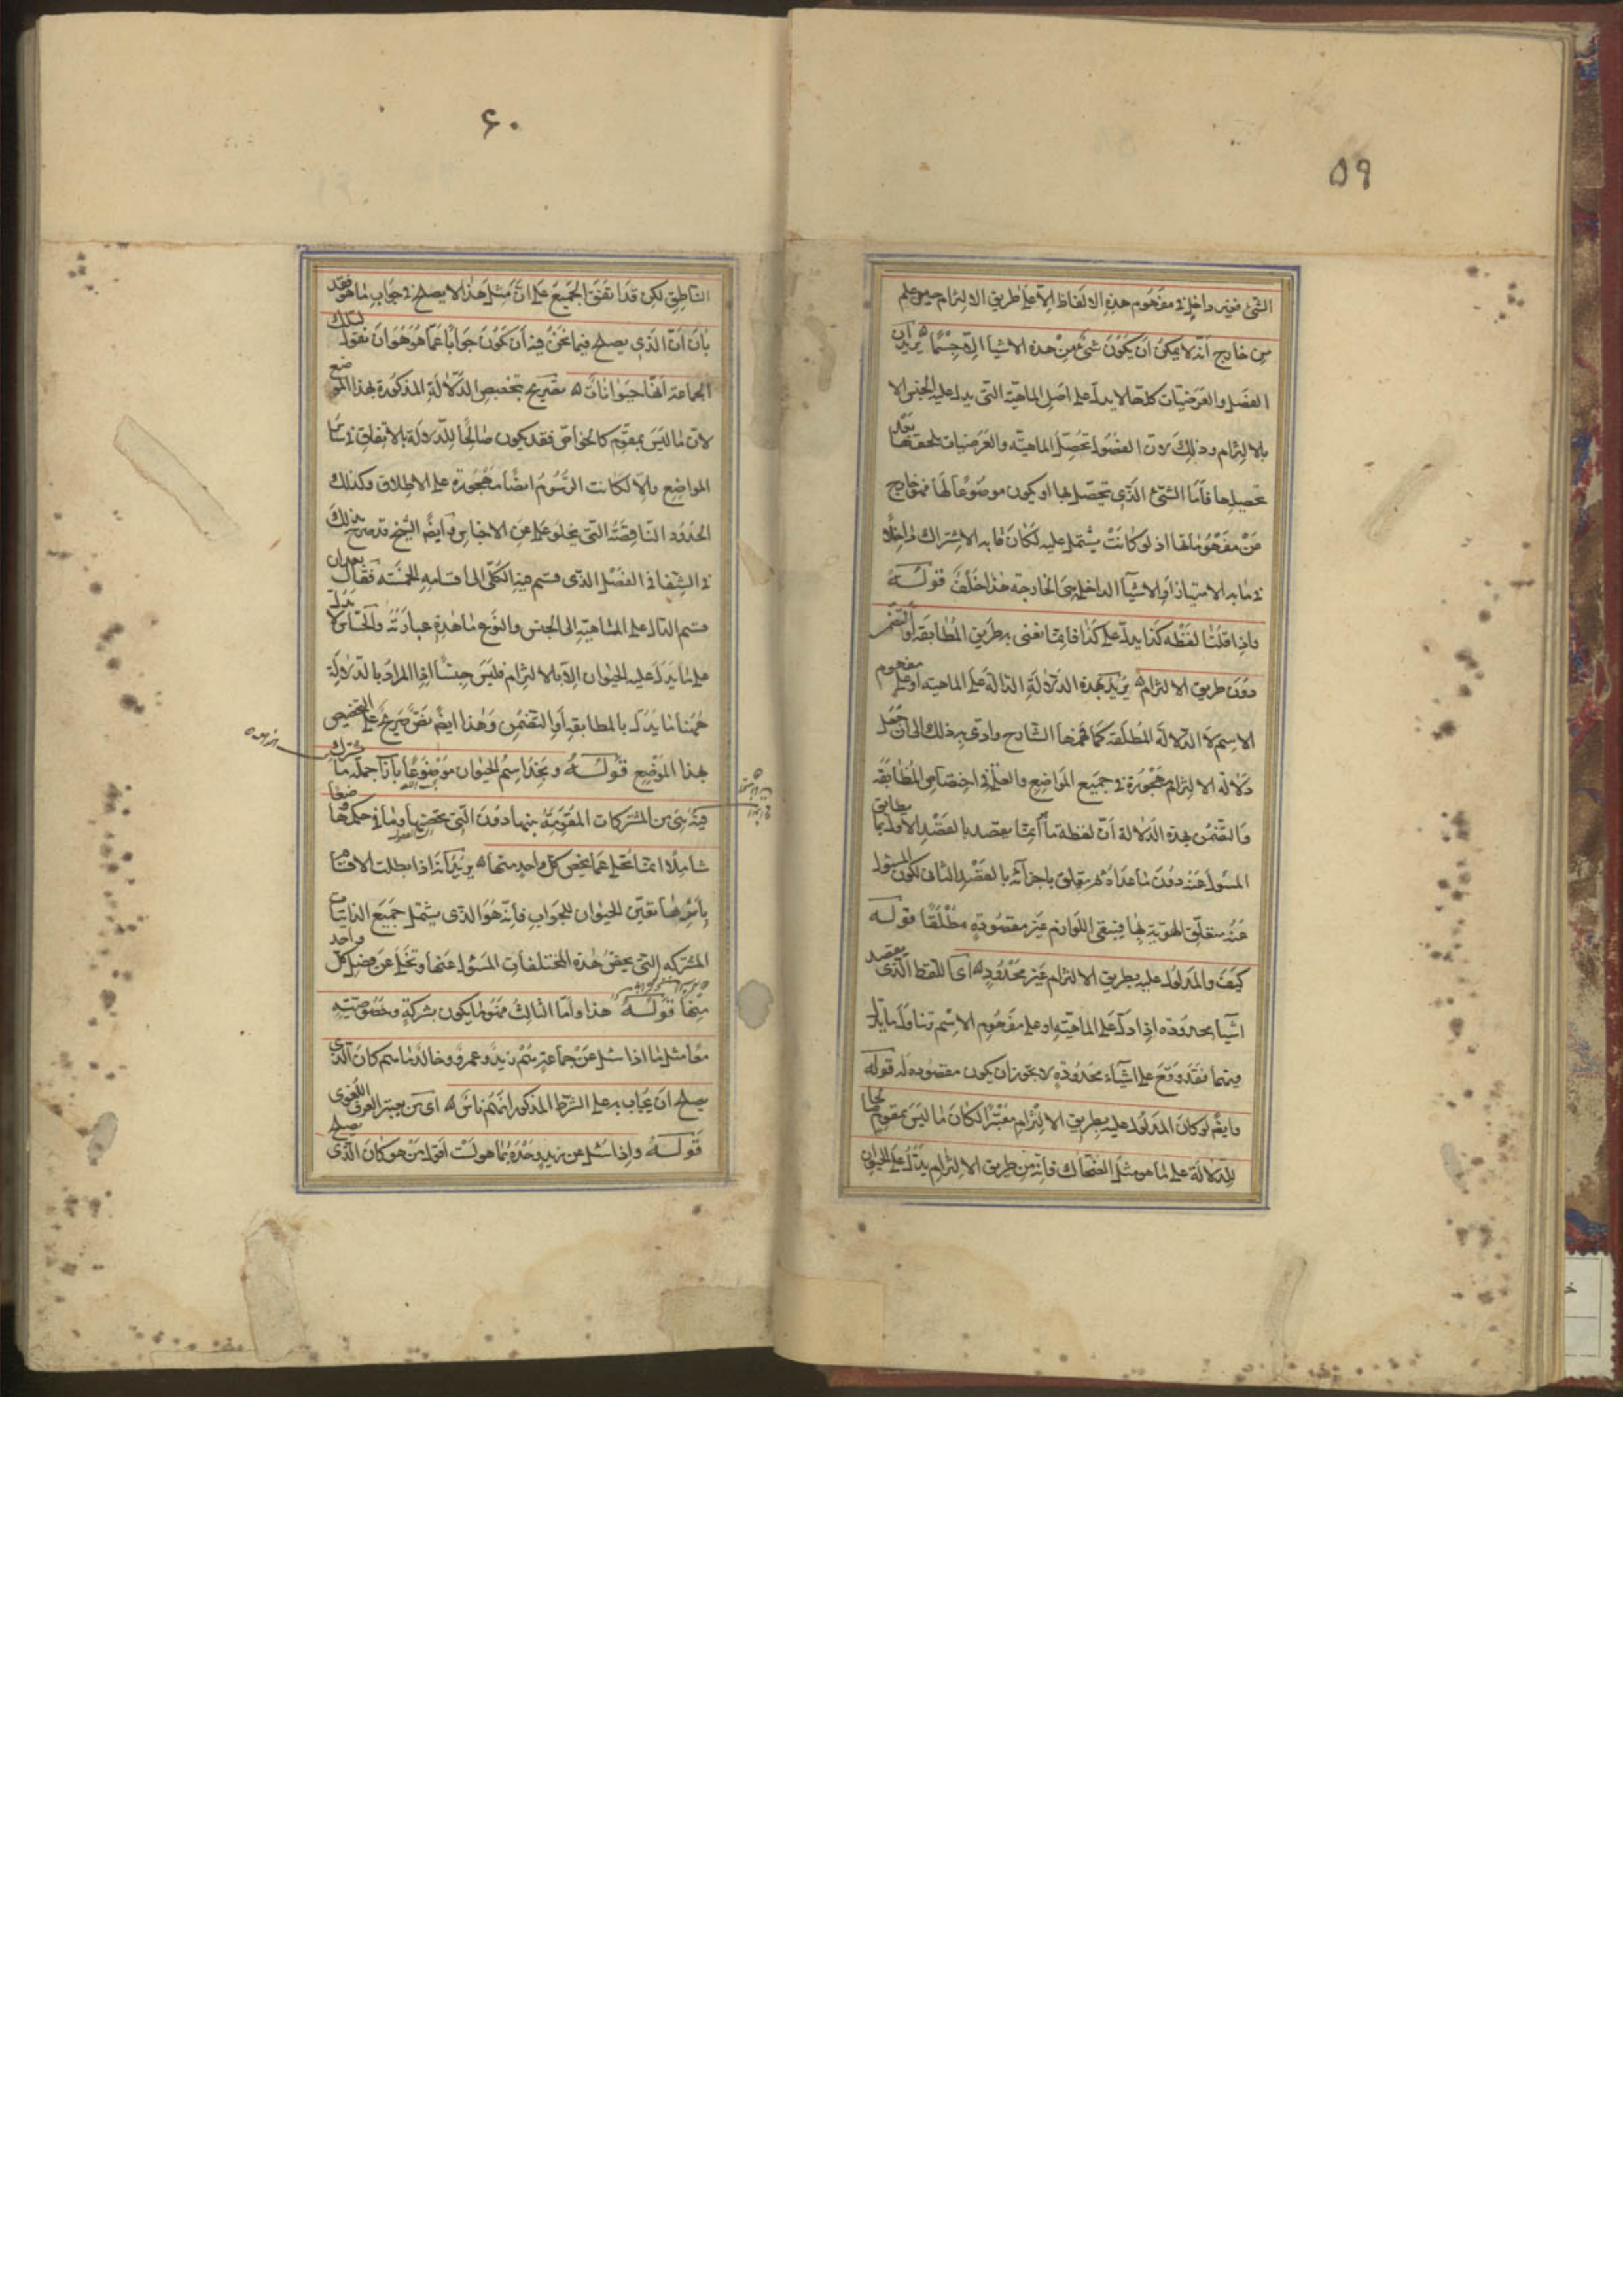 ٥٩
الشئ فغير داخل في مفهوم هذه الالفاظ الا على طريق الالتزام حين علم
من خارج انه لا يمكن ان يكون شئ من هذه الاشياء الا جسما ه يريد ان
الفصل والعرضيات كلها لا يدل على اصل الماهية التي يدل عليه الجنس الا
بالالتزام وذلك لان الفصول تحصل الماهية والعرضيات تلحقها بعد
تحصيلها فاما الشئ الذي يتحصل بها او يكون موضوعا لها فهو خارج
عن مفهوماتها اذ لو كانت يشتمل عليه لكان ما به الاشتراك داخلا
في ما به الامتياز او الاشياء الداخلة هي الخارجة هذا خلف قوله
واذا قلنا لفظة كذا يدل على كذا فانما نعنى به طريق المطابقة او التضمن
دون طريق الالتزام ه يريد بهذه الدلالة الدالة على الماهية او على مفهوم
الاسم لا الدلالة المطلقة كما فهمها الشارح وادى به ذلك الى ان جعل
دلالة الالتزام مهجورة في جميع المواضع والعلة في اختصاص المطابقة
والتضمن بهذه الدلالة ان لفظة ما انما يقصد بالقصد الاول ما يطابق
المسئول عنه دون ما عداه ثم يتعلق باجزائه بالقصد الثاني لكون المسئول
عنه متعلق الهوية بها فيبقى اللوازم غير مقصودة مطلقا قوله
كيف والمدلول عليه بطريق الالتزام غير محدود ه اى اللفظ الذى يقصد
اشياء محدودة اذا دل على الماهية او على مفهوم الاسم تناول ما يدل
فيهما فقد وقع على اشياء محدودة لا يجوز ان يكون مقصوده له قوله
وايضم لو كان المدلول عليه بطريق الالتزام معتبرا لكان ما ليس بمقوم صالحا
للدلالة على ما هو مثل الضحاك فانه من طريق الالتزام يدل على الحيوان
٦٠
الناطق لكن قد اتفق الجميع على ان مثل هذا لا يصلح في جواب ما هو فقد
بان ان الذي يصلح فيما نحن فيه ان يكون جوابا عما هو هو ان نقول لتلك
الجماعة انها حيوانات ه تصريح بتخصيص الدلالة المذكورة بهذا الموضع
لان ما ليس بمقوم كالخواص فقد يكون صالحا للدلالة بالاتفاق في سائر
المواضع والا لكانت الرسوم ايضا مهجورة على الاطلاق وكذلك
الحدود الناقصة التي يخلو عن الاجناس وايضم الشيخ قد صرح بذلك
في الشفا في الفصل الذي قسم فيه الكلى الى اقسامه الخمسة فقال بعد ان
قسم الدال على الماهية الى الجنس والنوع ما هذه عبارته والحساس لا يدل
على ما يدل عليه الحيوان الا بالالتزام فليس جنسا اذا المراد بالدلالة
ههنا ما يدل بالمطابقة او التضمن وهذا ايضم نص صريح على التخصيص
بهذا الموضع قوله ونجد اسم الحيوان موضوعا بازاء جملة ما يشترك
فيه هي من المشتركات المقومة بينها دون التي تخصها وما في حكمها وضعا
شاملا انما يخل عما يخص كل واحد منها ه يريد انه اذا بطلت الاقسام
باسرها تعين الحيوان للجواب فانه هو الذى يشتمل جميع الذاتيات
المشتركة التي يخص هذه المختلفات المسؤل عنها وتخلى عن فصل كل واحد
منها قوله هذا واما الثالث فهو ما يكون بشركة وخصوصية
معا مثل ما اذا سئل عن جماعة هم زيد وعمرو وخالد ما هم كان الذى
يصلح ان يجاب به على الشرط المذكور انهم ناس ه اى من يعتبر العرف اللغوى
قوله واذا سئل عن زيد وحده ما هو لست اقول من هو كان الذى يصلح